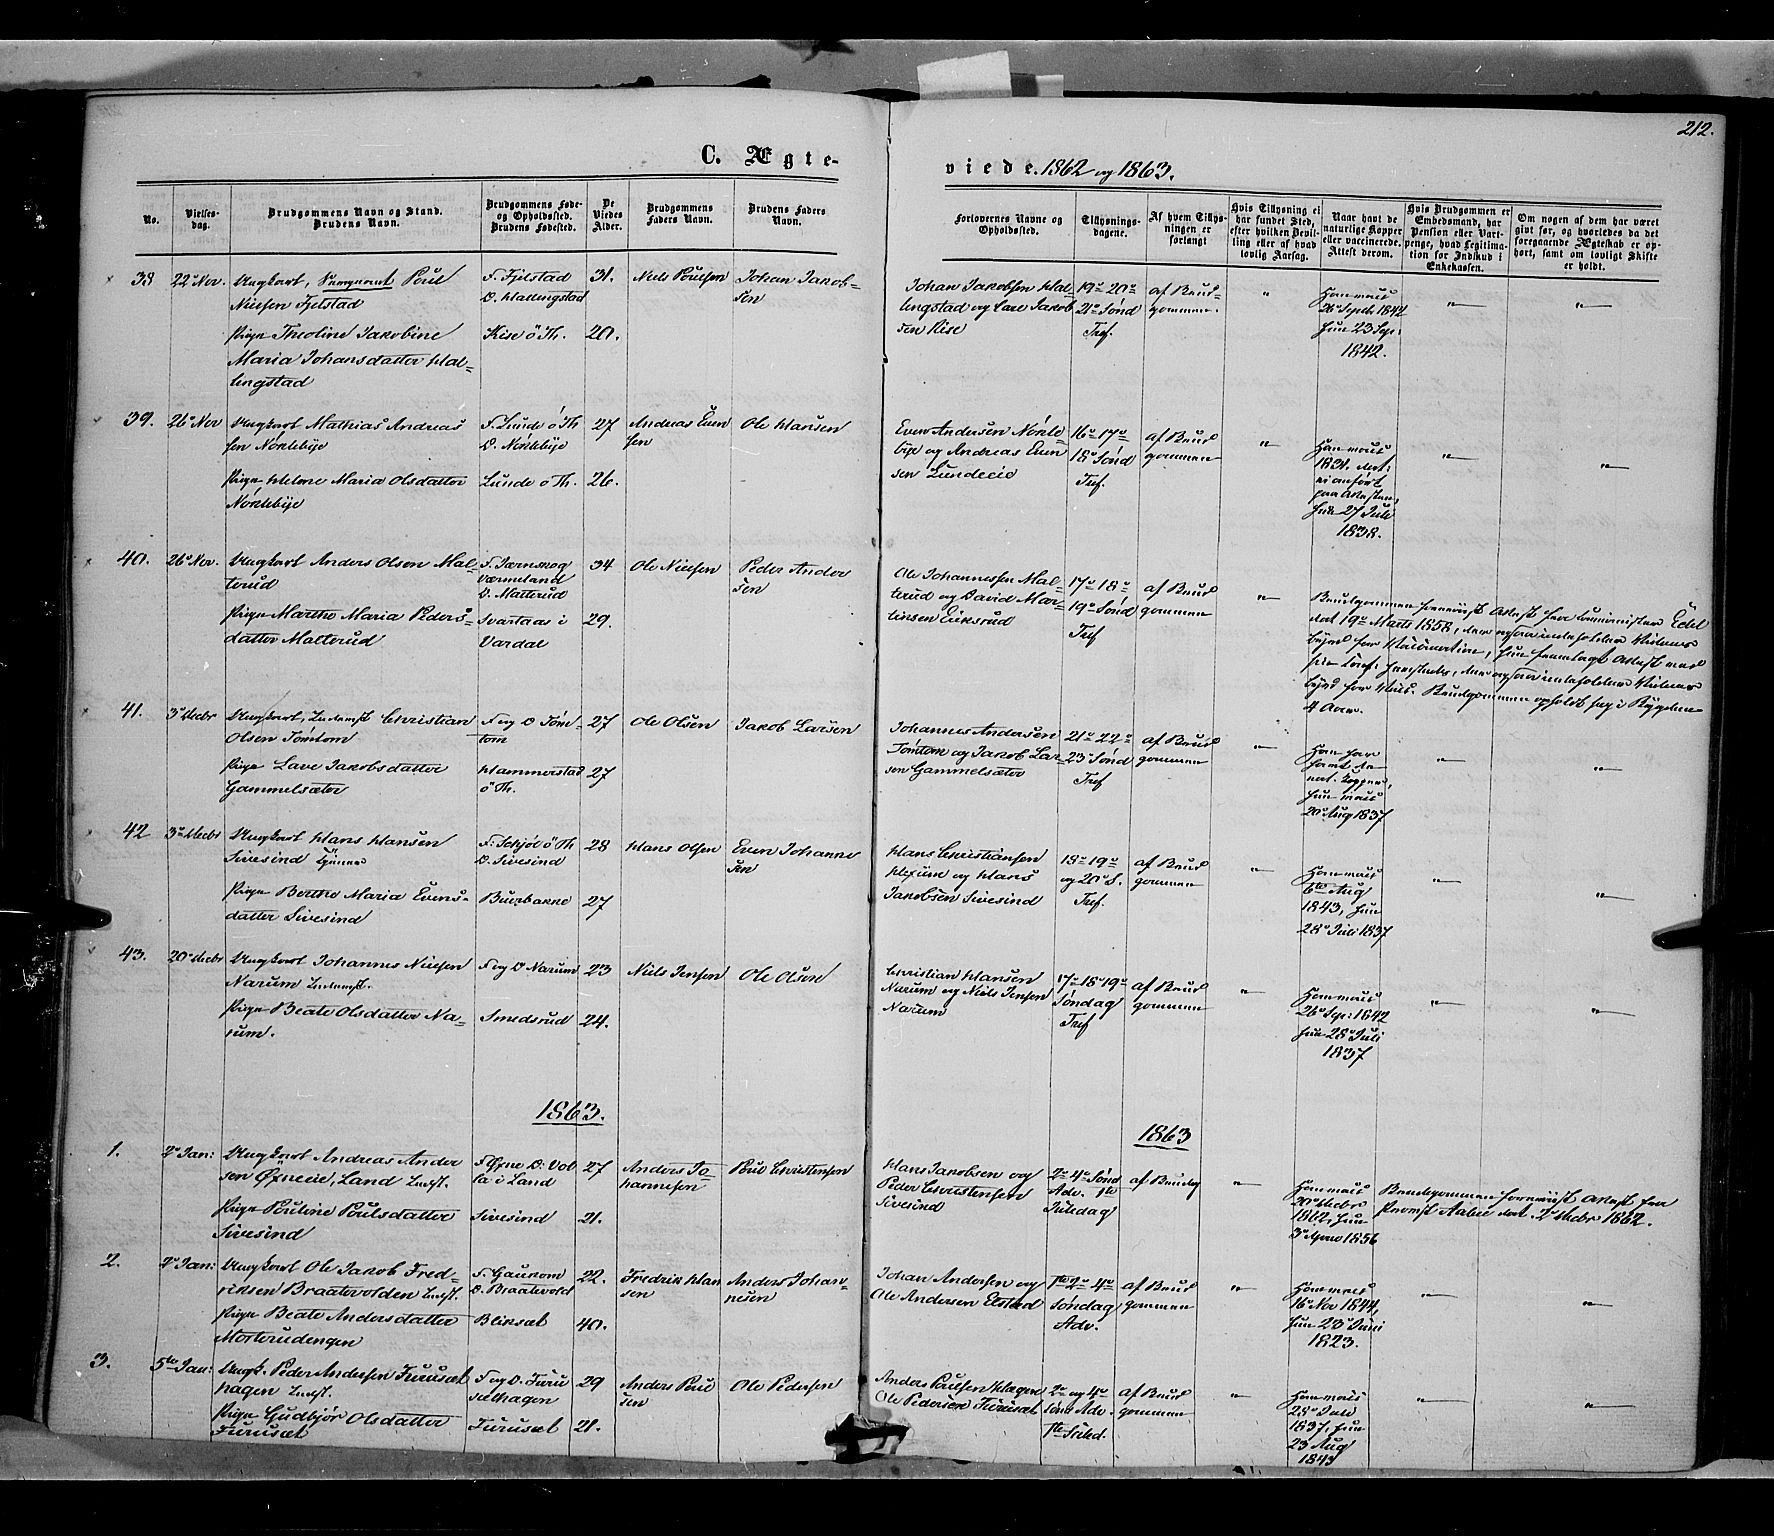 212.
C. Ægte-
viede. 1862 og 1863.
No.
Vielses-
dag.
Brudgommens Navn og Stand.
Brudens Navn.
Brudgommens Føde-
og Opholdssted.
Brudens Fødested.
De
Viedes
Alder.
Brudgommens
Faders Navn.
Brudens Faders
Navn.
Forlovernes Navne og
Opholdssted.
Tillysnings-
dagene.
Af hvem Tillys-
ningen er
forlangt
Hvis Tillysning ei
har fundet Sted,
efter hvilken Bevil-
ling eller af hvad
lovlig Aarsag.
Naar havt de
naturlige Kopper
eller vaccinerede.
Attest derom.
Hvis Brudgommen er
Embedsmand, har
Pension eller Vart-
penge, hvad Legitima-
tion for Indskud i
Enkekassen.
Om nogen af dem har været
gift før, og hvorledes da det
foregaaende Ægteskab er op-
hørt, samt om lovligt Skifte
er holdt.
38
22 Nov.
Ungkarl, Poul
Nielsen Fjelstad
Pige Theoline Jakobine
Maria Johansdatter Hal-
lingstad
F. Fjelstad
O. Hallingstad
Kise ö Th.
31.
20.
Niels Poulsen
Johan Jakob-
sen
Johan Jakobsen Hal-
lingstad og Lars Jakob
sen Kise
19 20
21 Sønd
Tref.
af Brud-
gommen.
"
Han vacc
26 Septb 1842
hun 23 Sep.
1842.
"
"
39.
26 Nov
Ungkarl Mathias Andreas
sen Nøkleby
Pige Helene Maria Olsdatter
Nøkleby
F. Lunde ö Th
O. Nøkleby
Lunde ö Th.
27
26.
Andreas Even
sen
Ole Hansen
Even Andersen Nøkle-
bye og Andreas Even
sen Lundeeie
16 17
18 Sønd
Tref.
af Brud
gommen
"
Han vacc
ei anført
paa Attesten,
hun 27 Juli
1838.
"
"
40.
26 Nov.
Ungkarl Anders Olsen Mal-
terud
Pige Marthe Maria Peders-
datter Malterud
F. Jærnskog
Værmeland
O. Malterud
Svartaas i
Vardal
34
29.
Ole Nielsen
Peder Ander
sen
Ole Johannessen Mal-
terud og David Mar-
tinsen Eriksrud
17 18
19 Sønd
Tref
af Brud
gommen
"
Brudgommen fremviist Attest fra Comminister Edel
dat 19 Marts 1858, der ogsaa indeholder Vidnes
byrd for Vaccination, hun fremlagt Attest
4 Aar.
41.
3 Decbr
Ungkarl, Christian
Olsen Tømtom
Pige Lave Jakobsdatter
Gammelsæter
F og O Tøm-
tom
Hammerstad
ö Th.
27
27
Ole Olsen
Jakob Larsen
Johannes Andersen
Tømtom og Jakob Lar-
sen Gammelsæter
21 22
23 Sønd
Tref
af Brud
gommen
"
Han har
havt de
nat. Kopper,
hun vacc
20 Aug 1837
"
"
42
3 Decbr
Ungkarl Hans Hansen
Sivesind
Pige Berthe Maria Evens-
datter Sivesind
F. Schjøl ö Th
O. Sivesind
Buerbakke
28
27
Hans Olsen
Even Johanne
sen
Hans Christiansen
Hexum og Hans
Jakobsen Sivesind
18 19
og 20 S.
Tref.
af Brud
gommen
"
Han vacc
6te Aug
1843, hun
28 Juli 1837
"
"
43.
20 Decbr
Ungkarl Johannes Nielsen
Narum
Pige Beate Olsdatter Na-
rum.
F og O Narum
Smedsrud
23
24.
Niels Jensen
Ole Olsen
Christian Hansen
Narum og Niels Jensen
Narum
17 18 19
Søndag
Tref
af Brud
gommen
"
Han vacc
26 Sep: 1842
hun 28 Juli
1837
"
"
1863.
1863
1.
2 Jan:
Ungkarl Andreas Ander
sen Øxneeie, Land
Pige Pouline Poulsdatter
Sivesind
F Øxne O: Vol
la i Land
Sivesind
27
21.
Anders Jo-
hannesen
Poul Christensen
Hans Jakobsen og
Peder Christensen
Sivesind
2 4 Sønd
Adv. 1te
Juledag
af Brudg
"
Han vacc
20 Decbr
1862, hun
1856
Brudgommen fremviist Attest fra
Provst Aabel dat. 2 Decbr 1862.
2.
2 Jan:
Ungkarl Ole Jakob Fred-
riksen Braatevolden
Pige Beate Andersdatter
Morterudengen
F. Gaukom
O. Braatevold
Bliksæt
22.
40.
Fredrik Han
sen
Anders Johan-
nesen
Johan Andersen og
Ole Andersen Elstad
1te 2 4
Søndag
Adv.
af Brud
gommen
"
Han vacc
16 Nov 1844,
hun 23 Juni
1823.
"
"
3.
5te Jan:
Ungk. Peder Andersen Furusæt
hagen
Pige Gudbjør Olsdatter
Furusæt
F og O. Furu
sethagen
Furusæt
29
21.
Anders Poul
sen
Ole Pedersen
Anders Poulsen Hagen
Ole Pedersen Furusæt
2 og 4
Sønd Adv.
1te Juled.
af Brud
gommen
"
Han vacc
28 Juli
1837, hun
23 Aug
1843
"
"